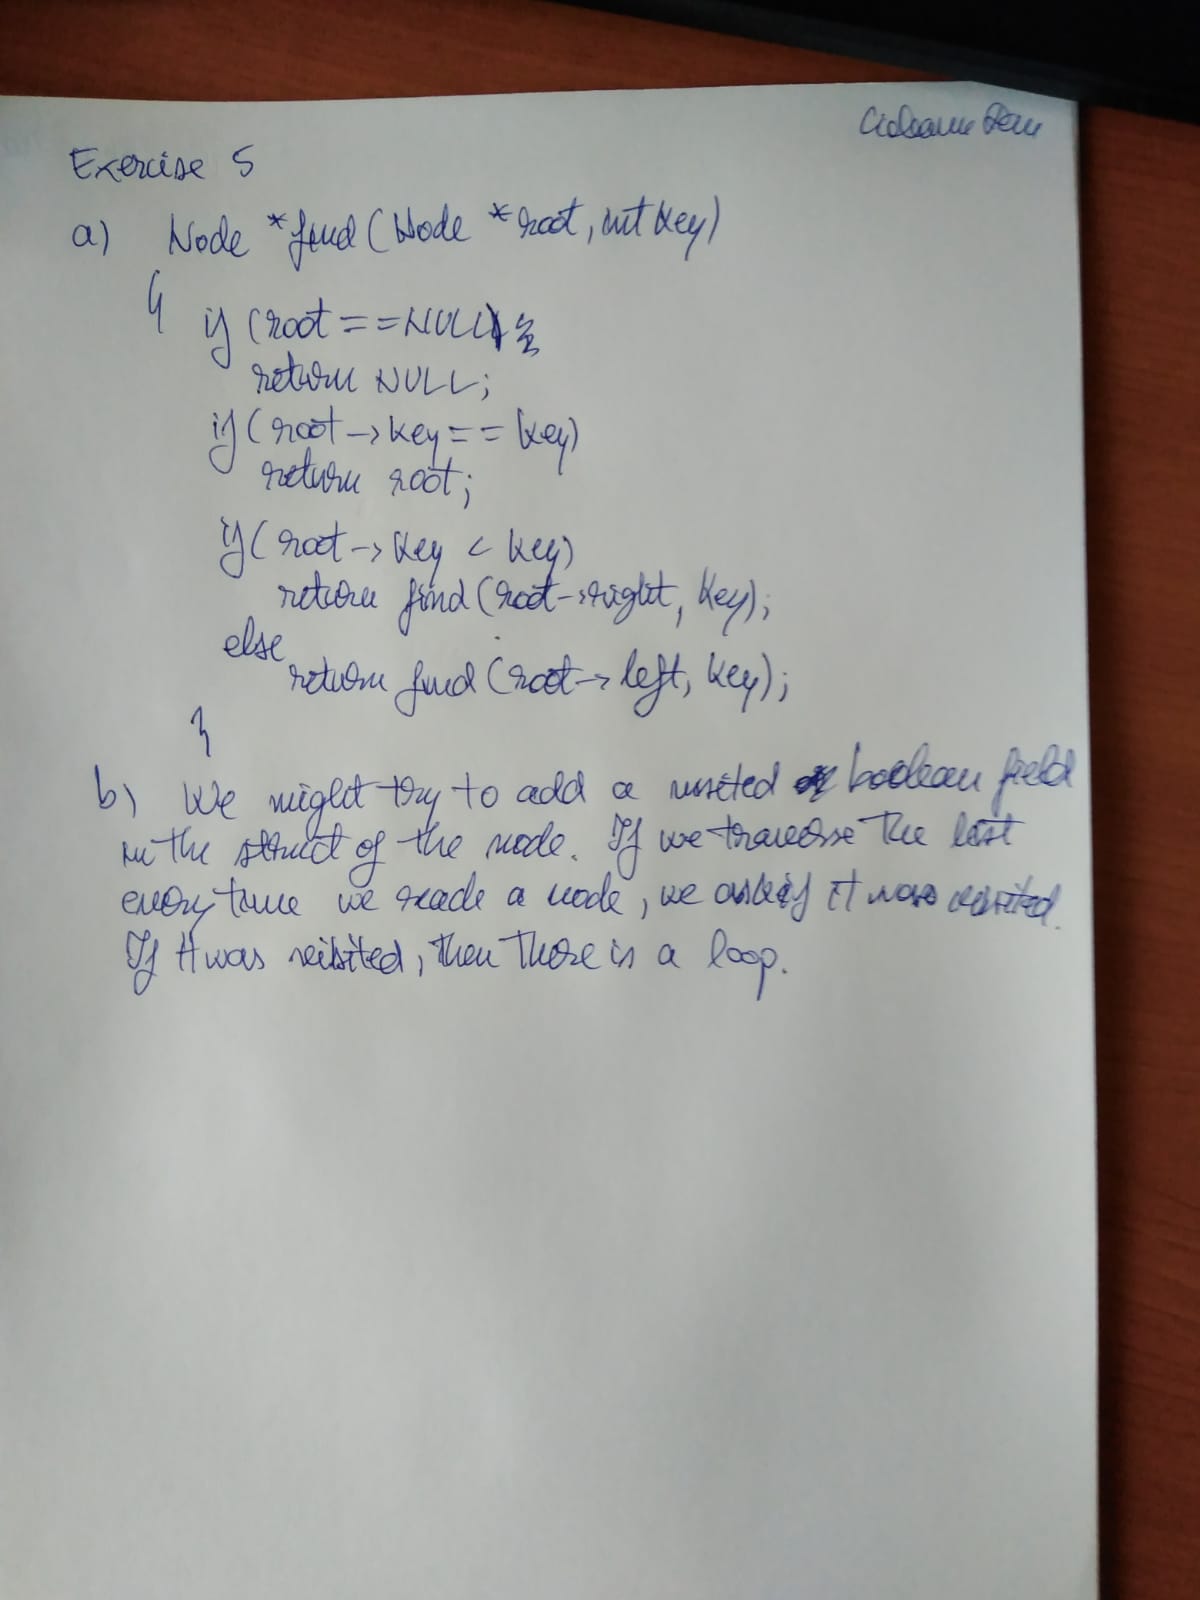 Exercise 5
a) Node *find (Node *root, int key)
{
if (root == NULL)
return NULL;
if (root -> key == key)
return root;
if (root -> key < key)
return find (root -> right, key);
else
return find (root -> left, key);
}
b) We might try to add a visited boolean field
in the struct of the node. If we traverse the list
every time we reade a node, we ask if it was visited.
If it was veisited, then there is a loop.